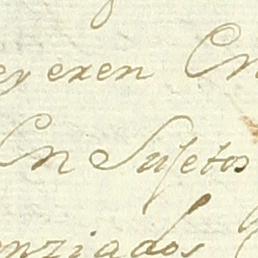 eyeren En
En Sujetos
enziados